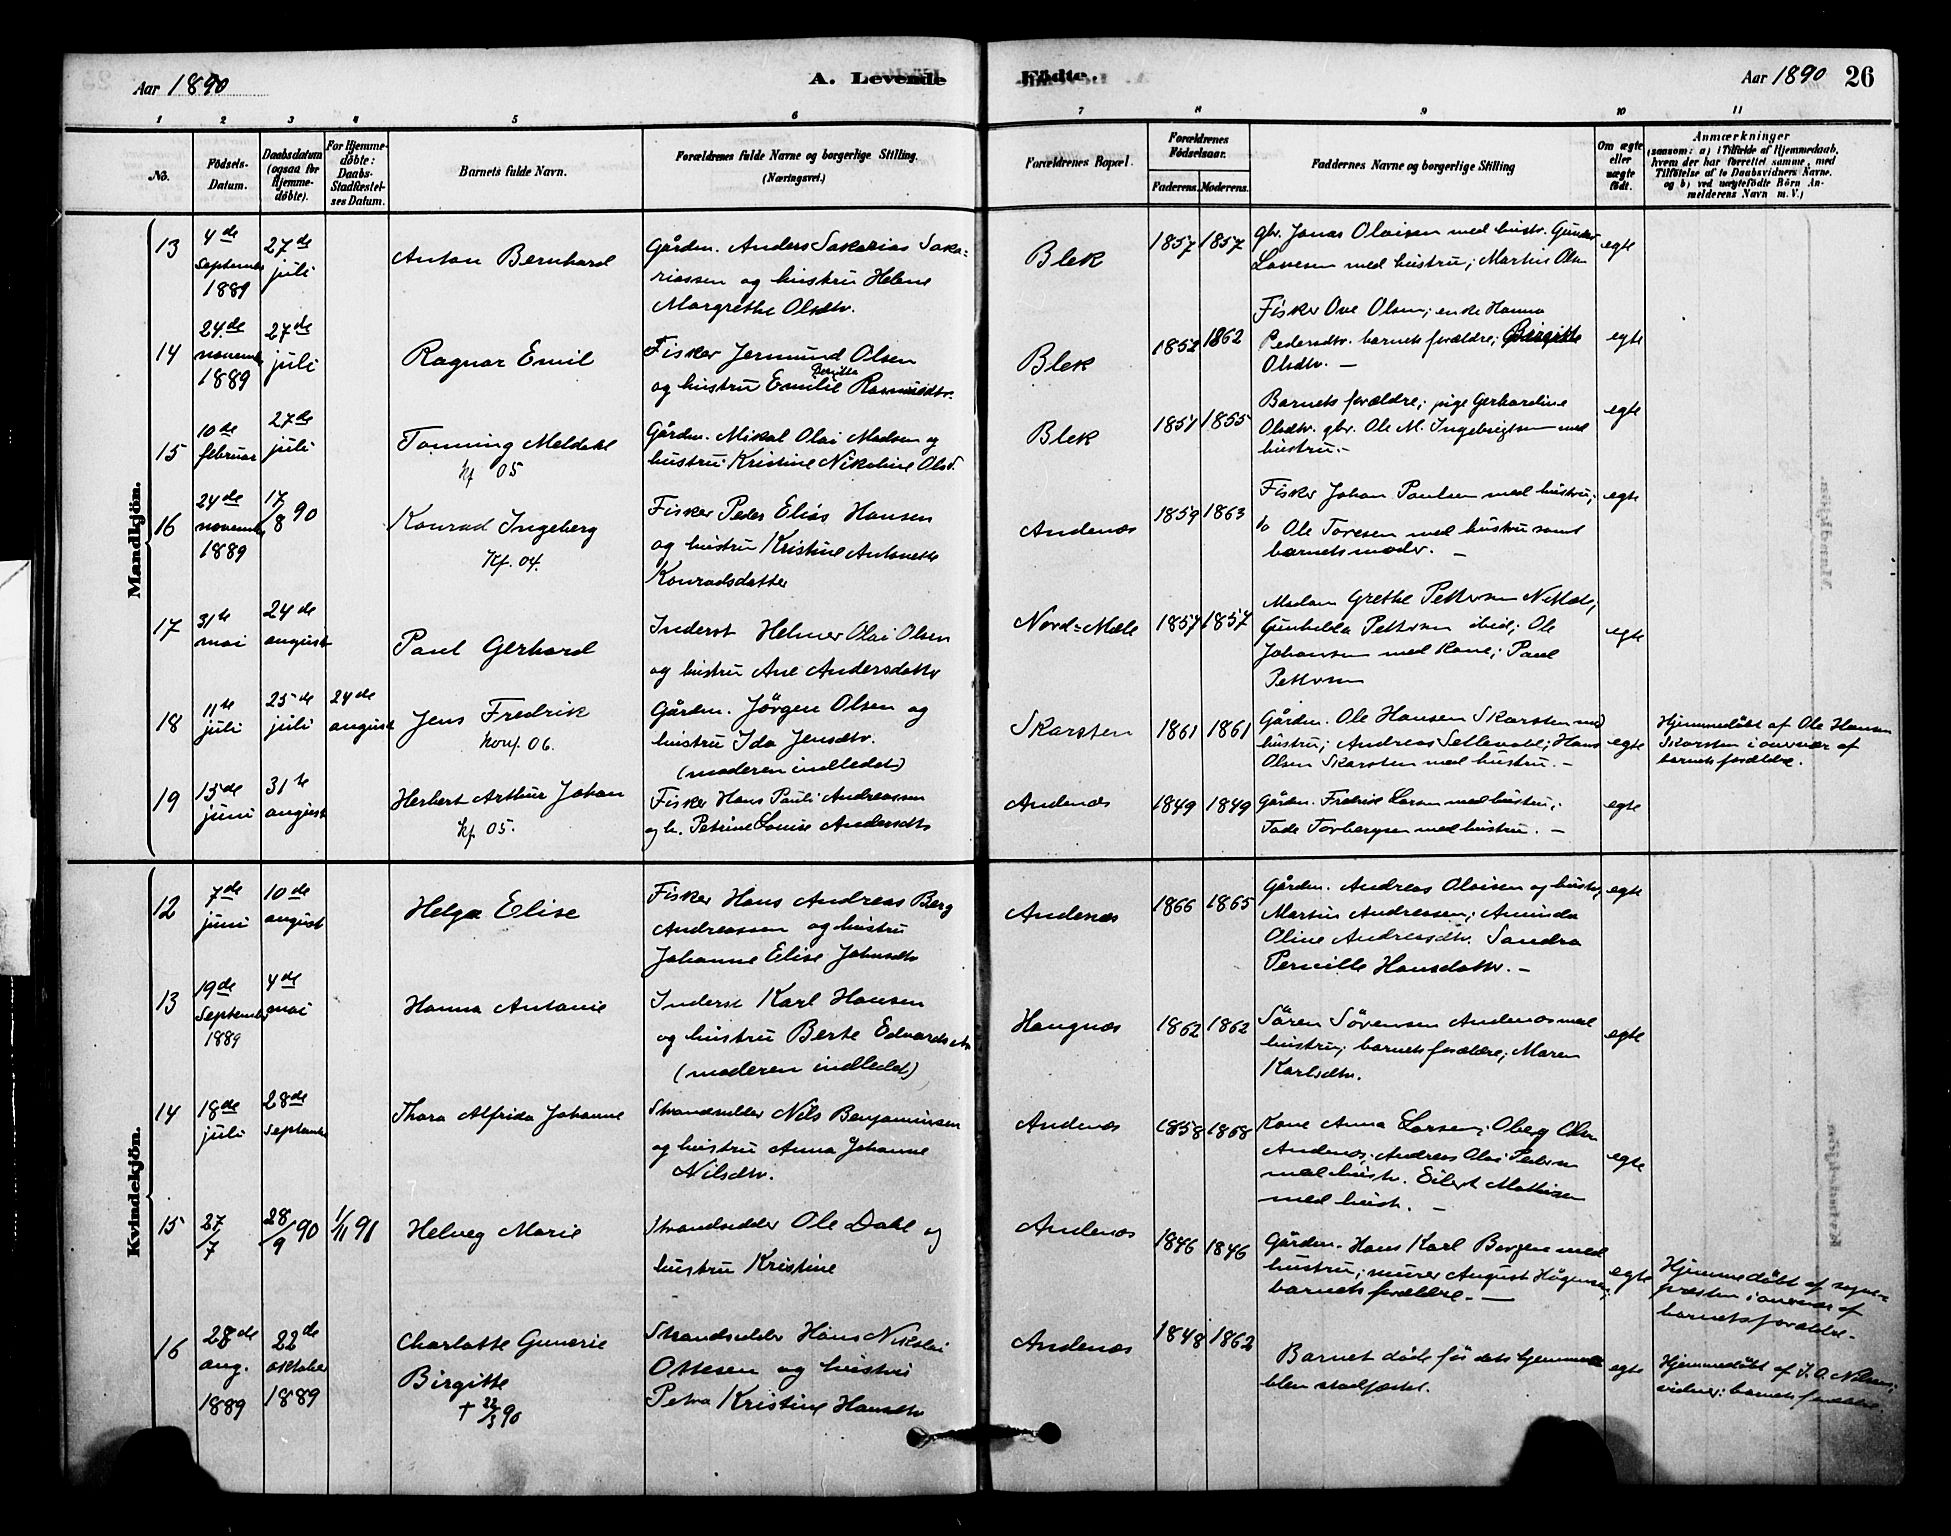 Aar 1890
A. Levende
Födte.
Aar 1890 26
1 2 3 4 5 6 7 8 9 10 11
No.
Födsels-
Datum.
Daabsdatum
(ogsaa for
Hjemme-
döbte).
For Hjemme-
döbte:
Daabs-
Stadfæstel-
ses Datum.
Barnets fulde Navn.
Forældrenes fulde Navne og borgerlige Stilling.
(Næringsvei.)
Forældrenes Bopæl.
Forældrenes
Födselsaar.
Faderens. Moderens.
Faddernes Navne og borgerlige Stilling
Om ægte
eller
uægte
født.
Anmærkninger
(saasom: a) i Tilfælde af Hjemmedaab,
hvem der har forrettet samme, med
Tilföielse af to Daabsvidners Navne,
og b) ved uægtefödte Börn An-
melderens Navn m. V.)
Mandkjön.
13
4de
September
1889
27de
juli
Anton Bernhard
Gårdm. Anders Sakarias Saka=
riassen og hustru Helene
Margrethe Olsdtr.
Blek
1857 1857
gbr. Jonas Olaisen med hustr.
med hustru; Martin Olsen
egte
14
24de
novemb
1889
27de
juli
Ragnar Emil
Fisker Jermund Olsen
og hustru Emilie
Blek
1852 1862
Fisker Ove Olsen; enke Hanna
Pedersdtr. barnets forældre; Birgitte
Olsdtr. —
egte
15
10de
februar
27de
juli
Tonning Meldahl
Kf 05
Gårdm. Mikal Olai Madsen og
hustru Kristine Nikoline Olsd.
Blek
1851 1855
Barnets forældre; pige Gerhardine
Olsdtr. gbr. Ole M. Ingebrigtsen med
hustru.-
egte
16
24de
novemb
1889
17/8 90
Konrad Ingeberg
Kf. 04.
Fisker Peder Elias Hansen
og hustru Kristine Antonette
Konradsdatter
Andenæs
1859 1863
Fisker Johan Paulsen med hustru;
Ole Toresen med hustru samt
barnets moder. —
egte
17
31te
mai
24de
august
Paul Gerhard
Inderst Helmer Olai Olsen
og hustru Ane Andersdattr
Nord=Mæle
1857 1857
Madam Grethe Pettersen
Gunhilda Pettersen ibid; Ole
Johansen med kone; Paul
Pettersen
egte
18
11te
juli
25de
juli
24de
august
Jens Fredrik
Konf. 06.
Gårdm. Jörgen Olsen og
hustru Ida Jensdtr.
(moderen indledet)
Skarsten
1861 1861
Gårdm. Ole Hansen Skarsten med
hustru; Andreas Sellevold; Hans
Olsen Skarsten med hustru. -
egte
Hjemmedöbt af Ole Hansen
Skarsten i overvær af
barnets forældre.
19
15de
juni
31te
august
Herbert Arthur Johan
Kf. 05.
Fisker Hans Pauli Andreassen
og h. Petrine Louise Andersdtr
Andenæs
1849 1849
Gårdm. Fredrik Larsen med hustru;
Tade Torbergsen med hustru. —
egte
Kvindekjön.
12
7de
juni
10de
august
Helga Elise
Fisker Hans Andreas Berg
Andreassen og hustru
Johanne Elise Johnsdtr
Andenæs
1866 1865
Gårdm. Andreas Olaisen og hustr,
Martin Andreassen; Aminda
Oline Andreasdtr. Sandra
Pernille Hansdattr. -
egte
13
19de
September
1889
4de
mai
Hanna Antonie
Inderst Karl Hansen
og hustru Berte Edvardsdtr
(moderen indledet)
Haugnæs
1862 1862
Sören Sörensen Andenæs med
hustru; barnets forældre; Maren
Karlsdtr.
egte
14
18de
juli
28de
Septembr
Thora Alfrida Johanne
Strandsidder Nils Benjaminsen
og hustru Anna Johanne
Nilsdtr.
Andenæs
1858 1868
Kone Anna Larsen; Oberg Olsen
Andenæs; Andreas Olai Pedersen
med hustr. Eilert Mathisen
med hustr. —
egte
15
27/7
28/9 90
1/11 91
Helveg Marie
Strandsidder Ole Dahl og
hustru Kristine
Andenæs
1846 1846
Gårdm. Hans Karl Borgen med
hustru; murer August Högmo;
barnets forældre. —
egte
Hjemmedöbt af sogne=
præsten i overvær af
barnets forældre.
16
28de
aug.
1889
22de
oktober
1889
Charlotte Gunerie
Birgitte
† 22/3 90
Strandsidder Hans Nikolai
Ottesen og hustru
Petra Kristine Hansdtr
Andenæs
1848 1862
Barnet döde för dets hjemmed.
blev stadfæstet.
egte
Hjemmedöbt af J. A. Nilsen;
vidner: barnets forældre.